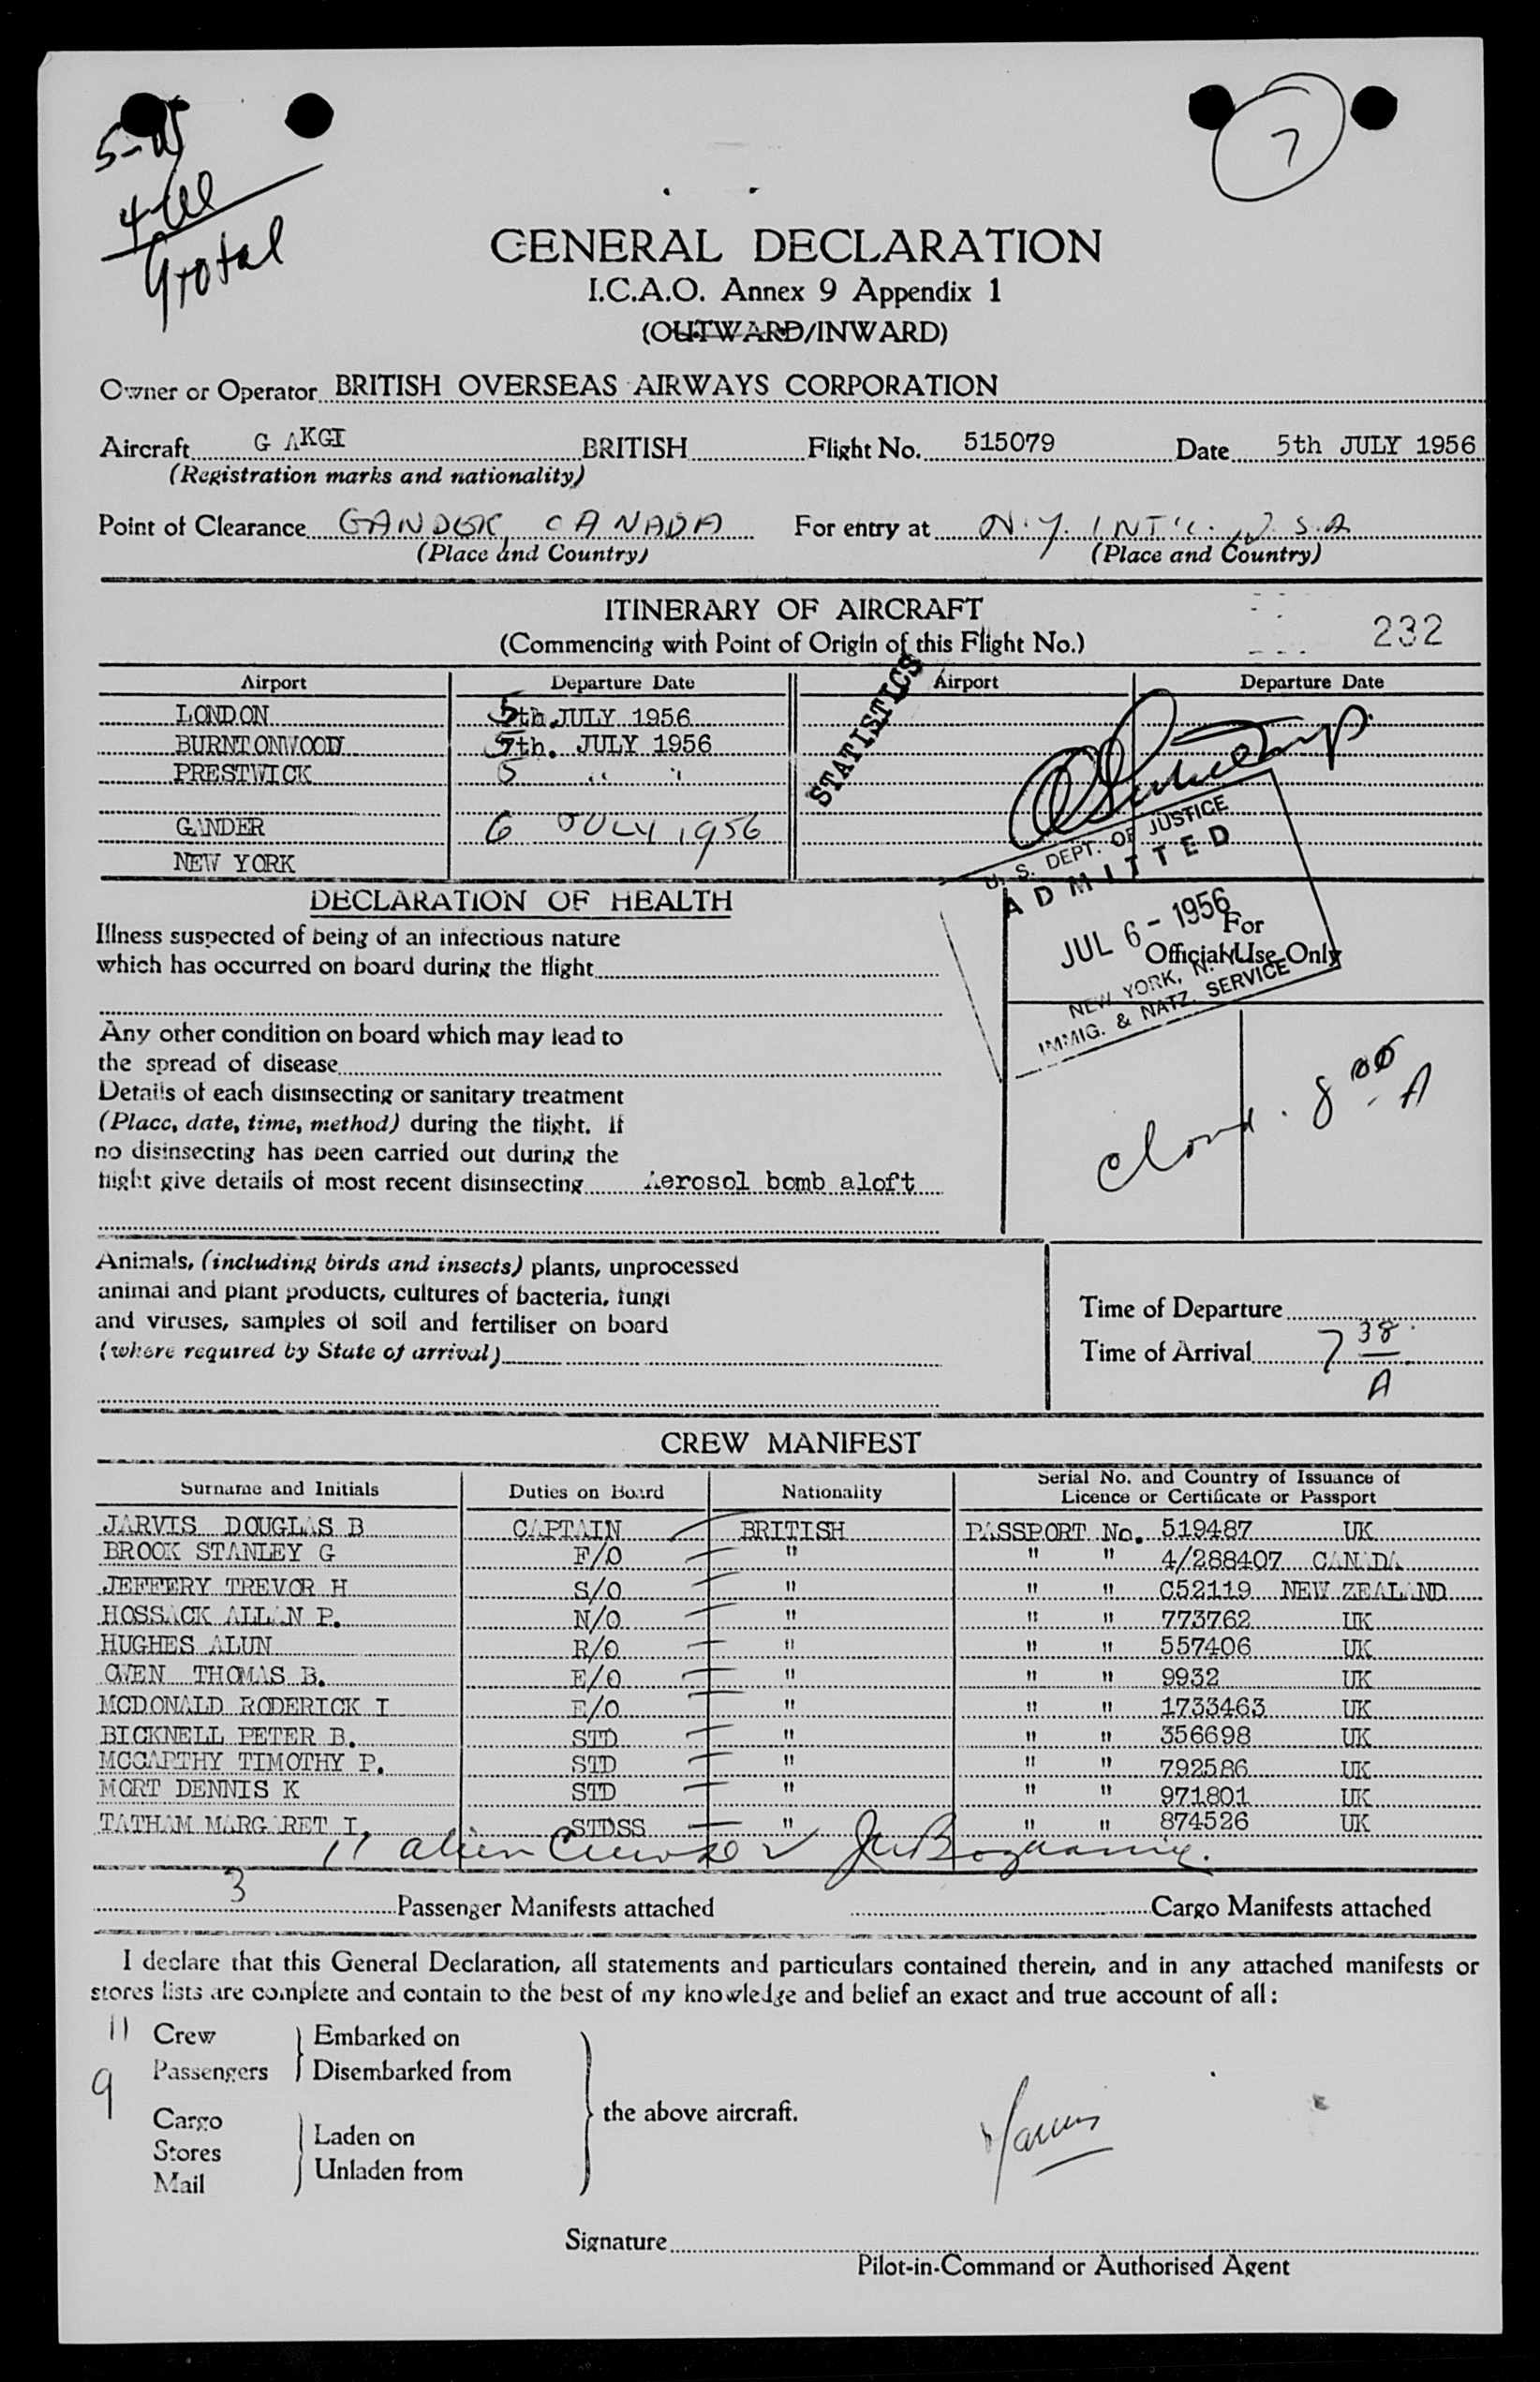 7
5-
4
9 total
GENERAL DECLARATION
I.C.A.O. Annex 9 Appendix 1
(OUTWARD/INWARD)
Owner or Operator BRITISH OVERSEAS AIRWAYS CORPORATION
Aircraft G AKGI BRITISH Flight No. 515079 Date 5th JULY 1956
(Registration marks and nationality)
Point of Clearance GANDER, CANADA For entry at N.Y. INT'L. U.S.A
(Place and Country) (Place and Country)
ITINERARY OF AIRCRAFT
(Commencing with Point of Origin of this Flight No.)
232
STATISTICS
Airport Departure Date Airport Departure Date
LONDON 5th JULY 1956
BURNTONWOOD 5th. JULY 1956
PRESTWICK 5 " "
GANDER 6 JULY 1956
NEW YORK
U. S. DEPT. OF JUSTICE
ADMITTED
JUL 6 - 1956
NEW YORK, N.
IMMIG. & NATZ. SERVICE
For
Official Use Only
DECLARATION OF HEALTH
Illness suspected of being of an infectious nature
which has occurred on board during the flight
Any other condition on board which may lead to
the spread of disease
Details of each disinsecting or sanitary treatment
(Place, date, time, method) during the flight. If
no disinsecting has been carried out during the
flight give details of most recent disinsecting Aerosol bomb aloft
8 00 A
Animals, (including birds and insects) plants, unprocessed
animal and plant products, cultures of bacteria, fungi
and viruses, samples of soil and fertiliser on board
(where required by State of arrival)
Time of Departure
Time of Arrival 7 38 A
CREW MANIFEST
Surname and Initials Duties on Board Nationality Serial No. and Country of Issuance of
Licence or Certificate or Passport
JARVIS DOUGLAS B CAPTAIN BRITISH PASSPORT No. 519487 UK
BROOK STANLEY G F/O " " " 4/288407 CANADA
JEFFERY TREVOR H S/O " " " C52119 NEW ZEALAND
HOSSACK ALLAN P. N/O " " " 773762 UK
HUGHES ALUN R/O " " " 557406 UK
OWEN THOMAS B. E/O " " " 9932 UK
MCDONALD RODERICK I E/O " " " 1733463 UK
BICKNELL PETER B. STD " " " 356698 UK
MCCARTHY TIMOTHY P. STD " " " 792586 UK
MORT DENNIS K STD " " " 971801 UK
TATHAM MARGARET I. STDSS " " " 874526 UK
11 alien
3 Passenger Manifests attached Cargo Manifests attached
I declare that this General Declaration, all statements and particulars contained therein, and in any attached manifests or
stores lists are complete and contain to the best of my knowledge and belief an exact and true account of all:
11 Crew Embarked on
9 Passengers Disembarked from
the above aircraft.
Cargo
Stores Laden on
Mail Unladen from
Jarvis
Signature
Pilot-in-Command or Authorised Agent